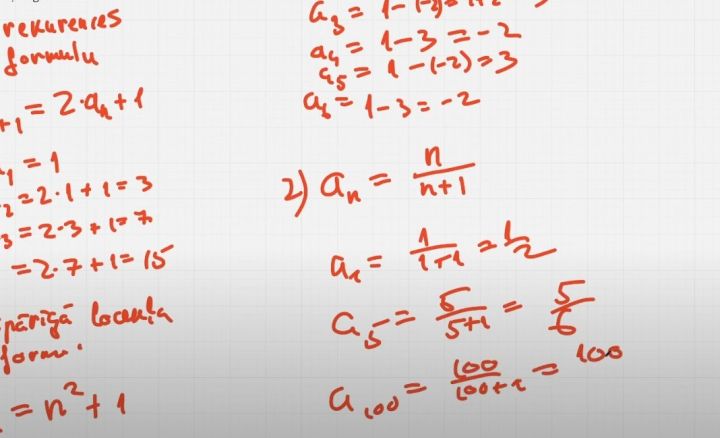 rekurences
formulu
+1 = 2·aₙ+1
1 = 1
2 = 2·1+1=3
3 = 2·3+1=7
= 2·7+1=15
pārīgā locekļa
form.
= n²+1
a₃ = 1-(-2)=1+2
a₄ = 1-3=-2
a₅ = 1-(-2)=3
a₆ = 1-3=-2
2) aₙ = n/(n+1)
a₁ = 1/(1+1) = 1/2
a₅ = 5/(5+1) = 5/6
a₁₀₀ = 100/(100+1) = 100